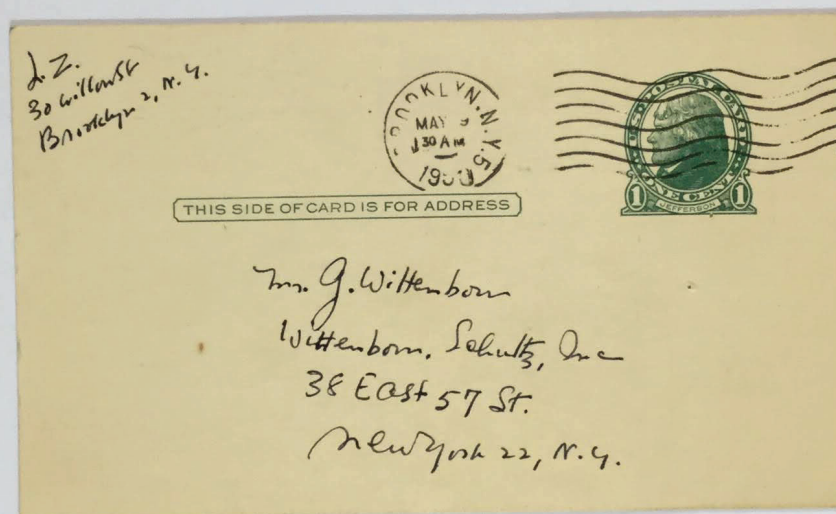 L. Z.
30 Willow St
Brooklyn 2, N. Y.
BROOKLYN, N.Y. 5
MAY
30 AM
U·S·POSTAL CARD
ONE CENT
1 JEFFERSON 1
THIS SIDE OF CARD IS FOR ADDRESS
Mr. G. Wittenborn
Wittenborn, Schultz, Inc
38 East 57 St.
New York 22, N. Y.